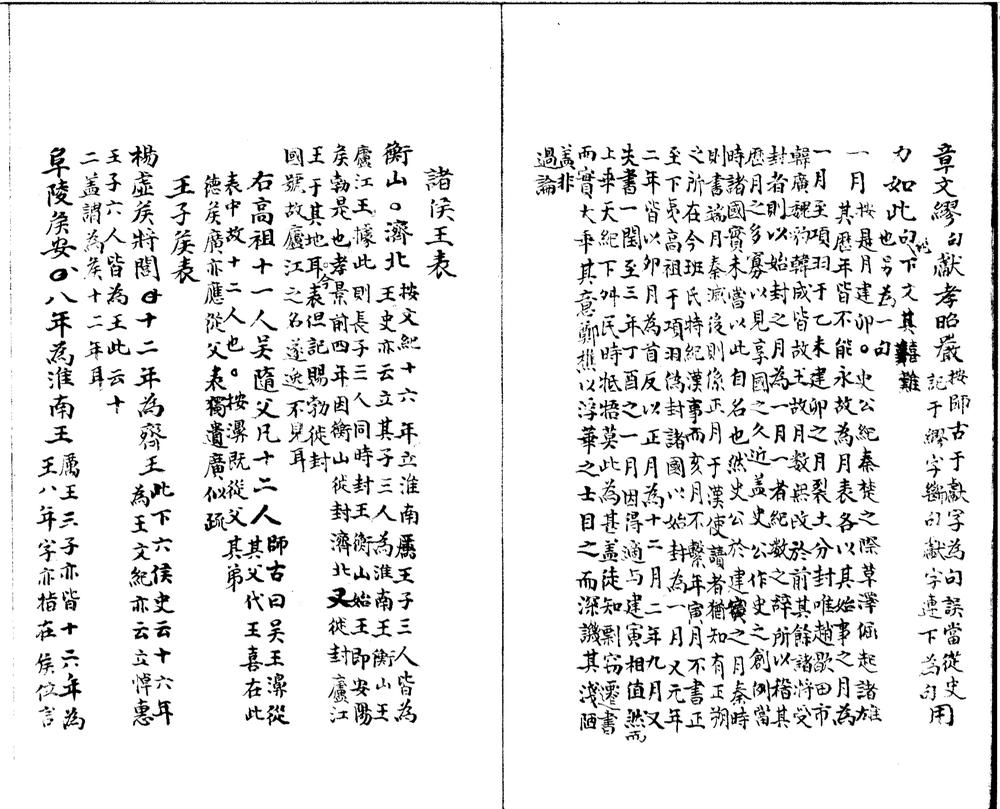 章文繆句獻孝昭嚴按師古于獻字為句誤當從史
記于繆字斷句獻字連下為句用
力如此句以下文其囏難
也另為一句
一月按是月建卯。史公紀秦楚之際草澤俶起諸雄
其歷年皆不能永故為月表各以其始事之月為
一月至項羽于乙未建卯之月裂土分封唯趙歇田市
韓廣魏豹韓成皆故王故月數無改於前其餘諸將受
封者則以始封之月為一月一者紀數之辭所以稽其
歷月之多寡以見享國之久近蓋史公作史之創例當
時諸國實未嘗以此自名也然史公於建寅之月秦時
則書端月秦滅後則係正月于漢使讀者猶知有正朔
之所在今班氏特紀漢事而亥月不繫年寅月不書正
至下夷高祖于項羽偽封諸國以始封為一月又元年
二年皆以卯月為首反以正月為十二月二年九月又
失書一閏至三年丁酉之一月因得適与建寅相值然而
上乖天紀下舛民時牴牾莫此為甚蓋徒知剽竊遷書
而實大乖其意鄭樵以浮華之士目之而深譏其淺陋
蓋非
過論
諸侯王表
衡山。濟北按文紀十六年立淮南厲王子三人皆為
王史亦云立其子三人為淮南王衡山王
廬江王據此則長子二人同時封王衡山始王即安陽
矦勃是也孝景前四年因衡山徙封濟北又徙封廬江
王于其地耳今表但記賜勃徙封
國號故廬江之名遂逸不見耳
右高祖十一人吳隨父凡十二人師古曰吳王濞從
其父代王喜在此
表中故十二人也。按濞既從父其弟
德矦廣亦應從父表獨遺廣似疏
王子矦表
楊虛矦將閭。十二年為齊王此下六侯史云十六年
為王文紀亦云立悼惠
王子六人皆為王此云十
二蓋謂為矦十二年耳
阜陵矦安。八年為淮南王厲王三子亦皆十六年為
王八年字亦指在侯位言